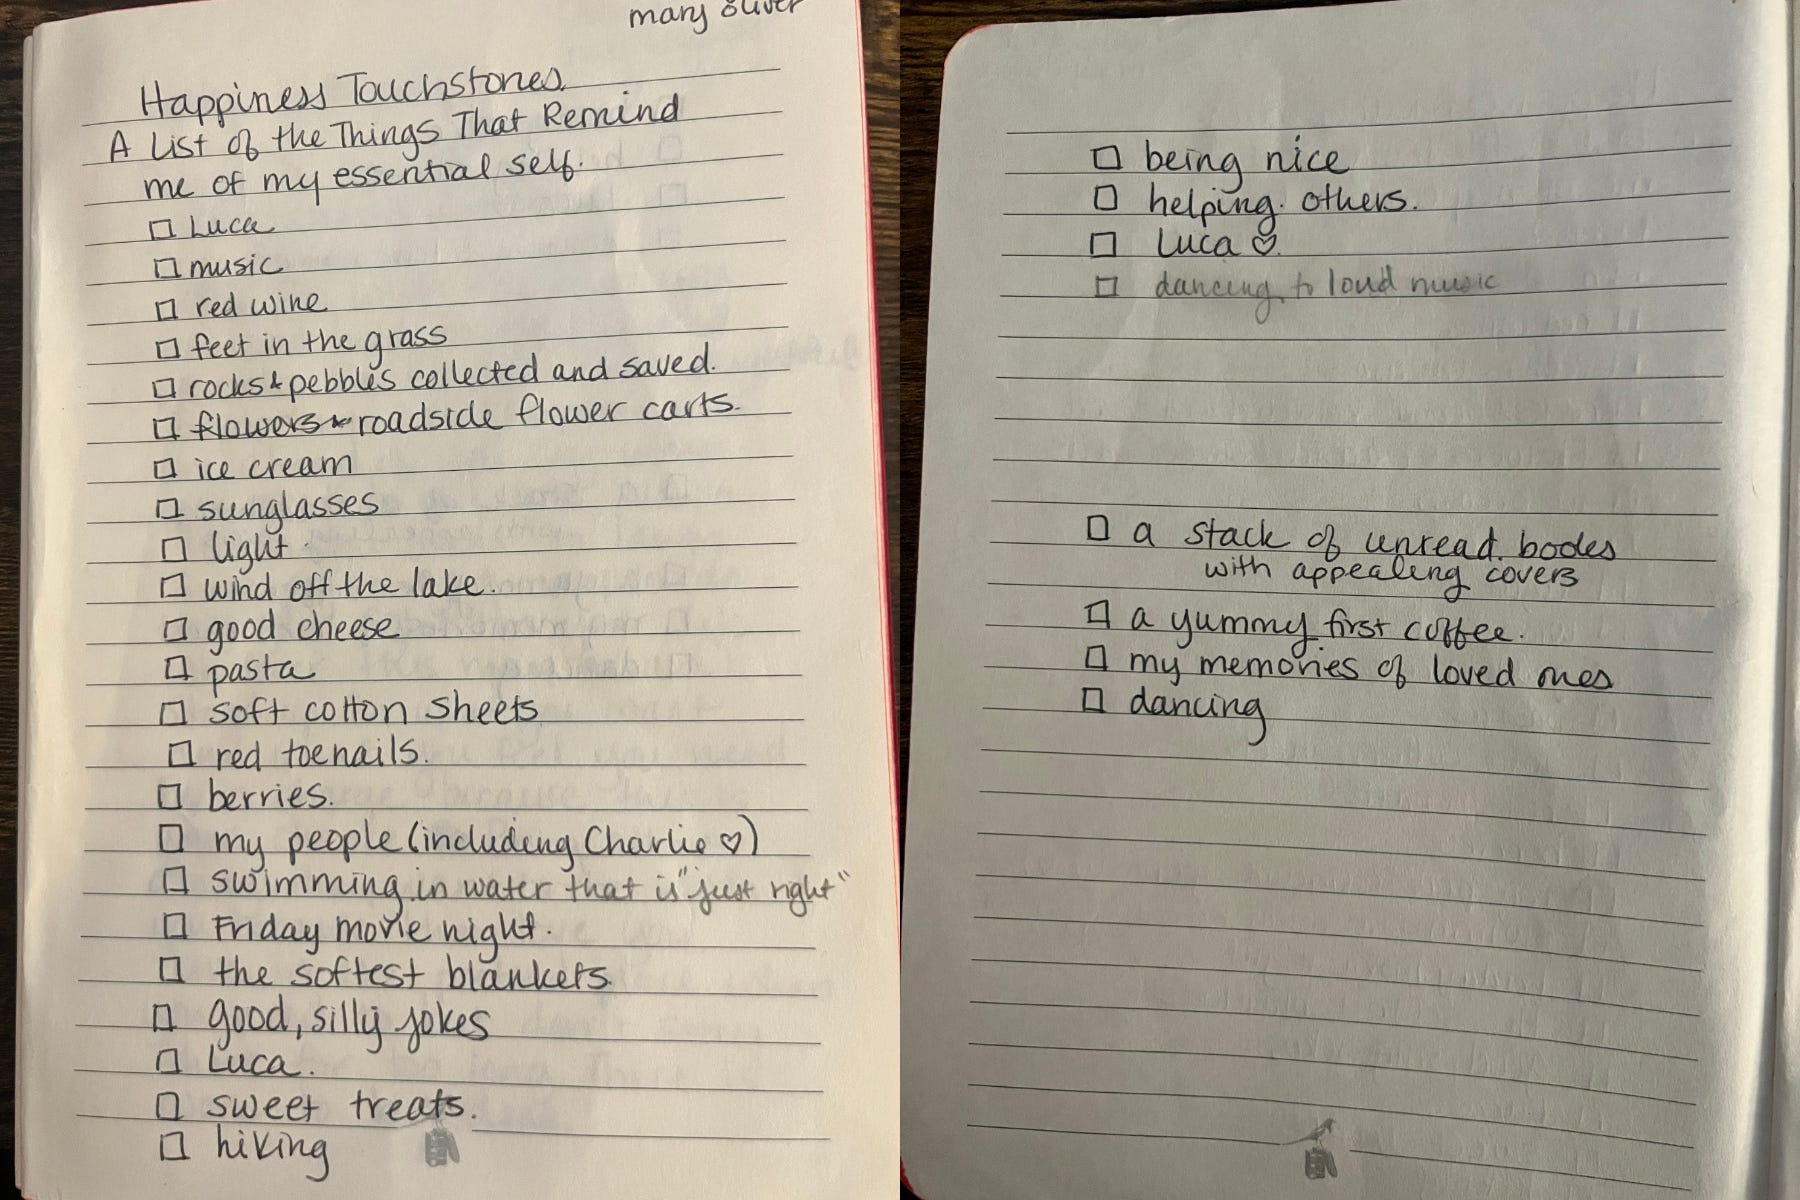 mary oliver
Happiness Touchstones.
A List of the Things That Remind
me of my essential self.
☐ Luca
☐ music
☐ red wine
☐ feet in the grass
☐ rocks & pebbles collected and saved.
☐ flowers & roadside flower carts.
☐ ice cream
☐ sunglasses
☐ light
☐ wind off the lake.
☐ good cheese
☐ pasta
☐ soft cotton sheets
☐ red toenails.
☐ berries.
☐ my people (including Charlie ♡)
☐ swimming in water that is "just right"
☐ Friday movie night.
☐ the softest blankets.
☐ good, silly jokes
☐ Luca.
☐ sweet treats.
☐ hiking
☐ being nice
☐ helping others.
☐ Luca ♡.
☐ dancing to loud music
☐ a stack of unread books
with appealing covers
☐ a yummy first coffee.
☐ my memories of loved ones
☐ dancing